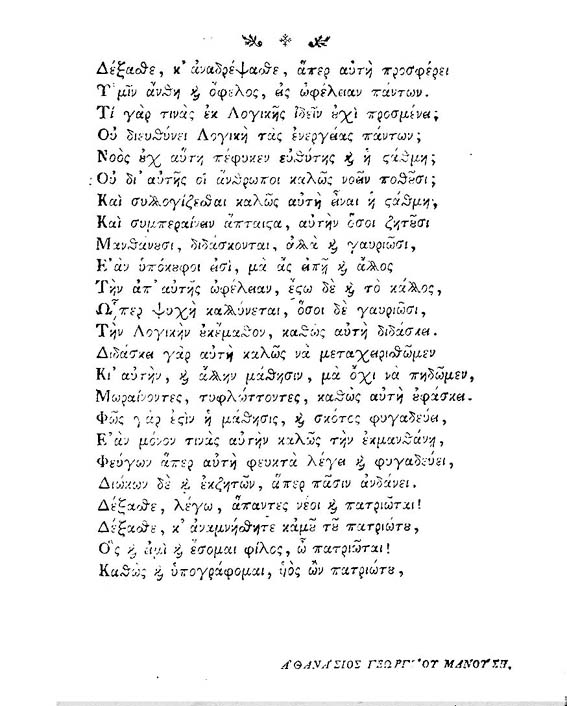 Δέξασθε, κ' ἀναδρέψασθε, ἅπερ αὐτὴ προσφέρει
Ὑμῖν ἄνθη ϗ ὄφελος, εἰς ὠφέλειαν πάντων.
Τί γὰρ τινὰς ἐκ Λογικῆς ἰδεῖν ȣ̓χὶ προσμένει;
Οὐ διευθύνει Λογικὴ τὰς ἐνεργείας πάντων;
Νοὸς ȣ̓χ αὕτη πέφυκεν εὐθύτης ϗ ἡ ϛάθμη;
Οὐ δι' αὐτῆς οἱ ἄνθρωποι καλῶς νοεῖν ποθȣ͂σι;
Καὶ συλλογίζεσθαι καλῶς αὐτὴ εἶναι ἡ ϛάθμη;
Καὶ συμπεραίνειν ἄπταιϛα, αὐτὴν ὅσοι ζητȣ͂σι
Μανθάνȣσι, διδάσκονται, ἀλλὰ ϗ γαυριῶσι,
Ἐὰν ὑπόκȣφοι εἰσὶ, μὰ ἂς εἰπῇ ϗ ἄλλος
Τὴν ἀπ' αὐτῆς ὠφέλειαν, ἔϛω δὲ ϗ τὸ κάλλος,
ᾯπερ ψυχὴ καλλύνεται, ὅσοι δὲ γαυριῶσι,
Τὴν Λογικὴν ἐκέμαθον, καθὼς αὐτὴ διδάσκει.
Διδάσκει γὰρ αὐτὴ καλῶς νὰ μεταχειρισθῶμεν
Κι' αὐτὴν, ϗ ἄλλην μάθησιν, μὰ ὄχι νὰ πηδῶμεν,
Μωραίνοντες, τυφλώττοντες, καθὼς αὐτὴ ἐφάσκει.
Φῶς γάρ ἐϛιν ἡ μάθησις, ϗ σκότος φυγαδεύει,
Ἐὰν μόνον τινὰς αὐτὴν καλῶς τὴν ἐκμανθάνῃ,
Φεύγων ἅπερ αὐτὴ φευκτὰ λέγει ϗ φυγαδεύει,
Διώκων δὲ ϗ ἐκζητῶν, ἅπερ πᾶσιν ἀνδάνει.
Δέξασθε, λέγω, ἅπαντες νέοι ϗ πατριῶται!
Δέξασθε, κ' ἀναμνήσθητε κἀμȣ͂ τȣ͂ πατριώτȣ,
Ὃς ϗ εἰμὶ ϗ ἔσομαι φίλος, ὦ πατριῶται!
Καθὼς ϗ ὑπογράφομαι, ὑιὸς ὢν πατριώτȣ,
ἈΘΑΝΆΣΙΟΣ ΓΕΩΡΓΊΟΥ ΜΑΝΟΎΣΗ.